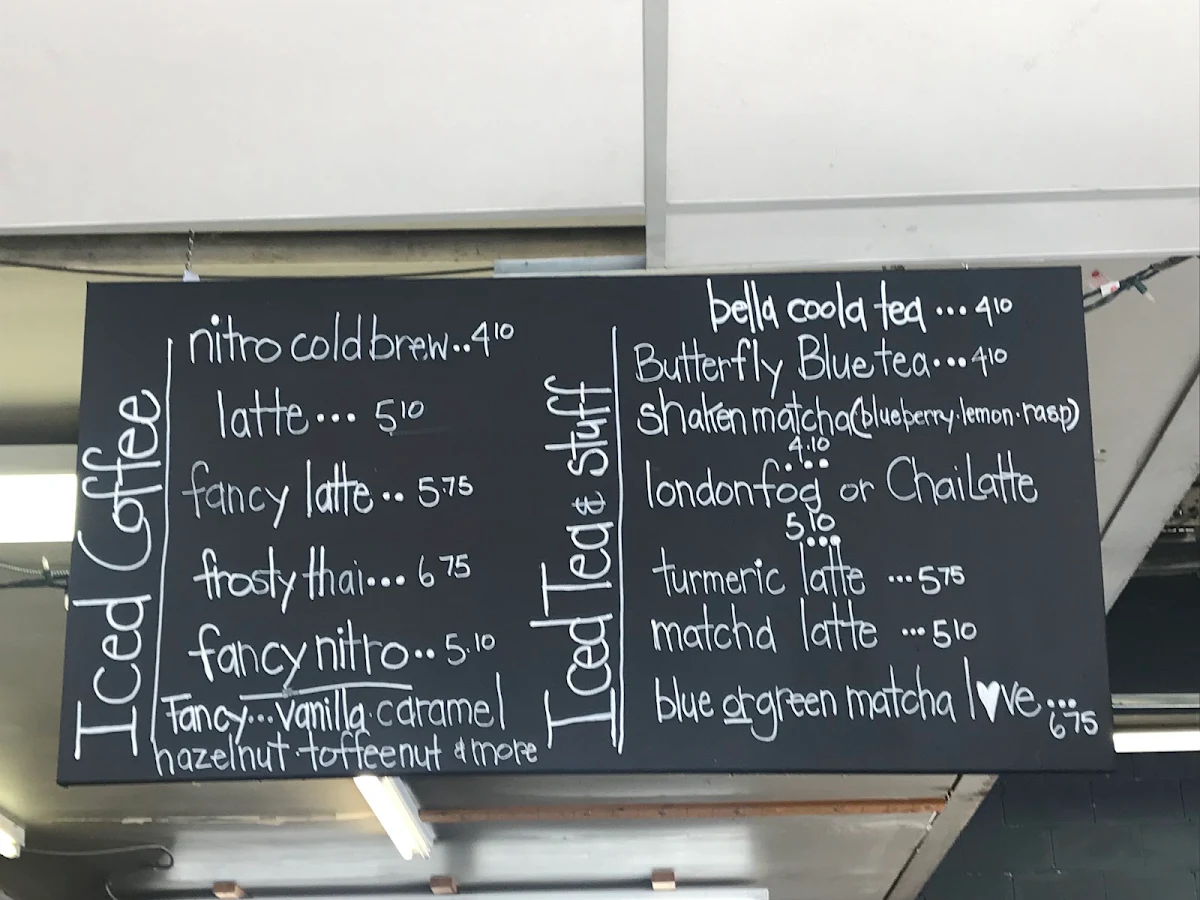 Iced Coffee
nitro cold brew..4 10
latte... 5 10
fancy latte.. 5.75
frosty thai... 6 75
fancy nitro.. 5.10
Fancy... vanilla. caramel
hazelnut. toffeenut & more
Iced Tea & Stuff
bella coola tea ... 4 10
Butterfly Blue tea... 4 10
shaken matcha (blueberry.lemon.rasp)
4.10
...
londonfog or Chai Latte
5.10
...
turmeric latte ...5 75
matcha latte ...5 10
blue or green matcha l♥ve...
6 75